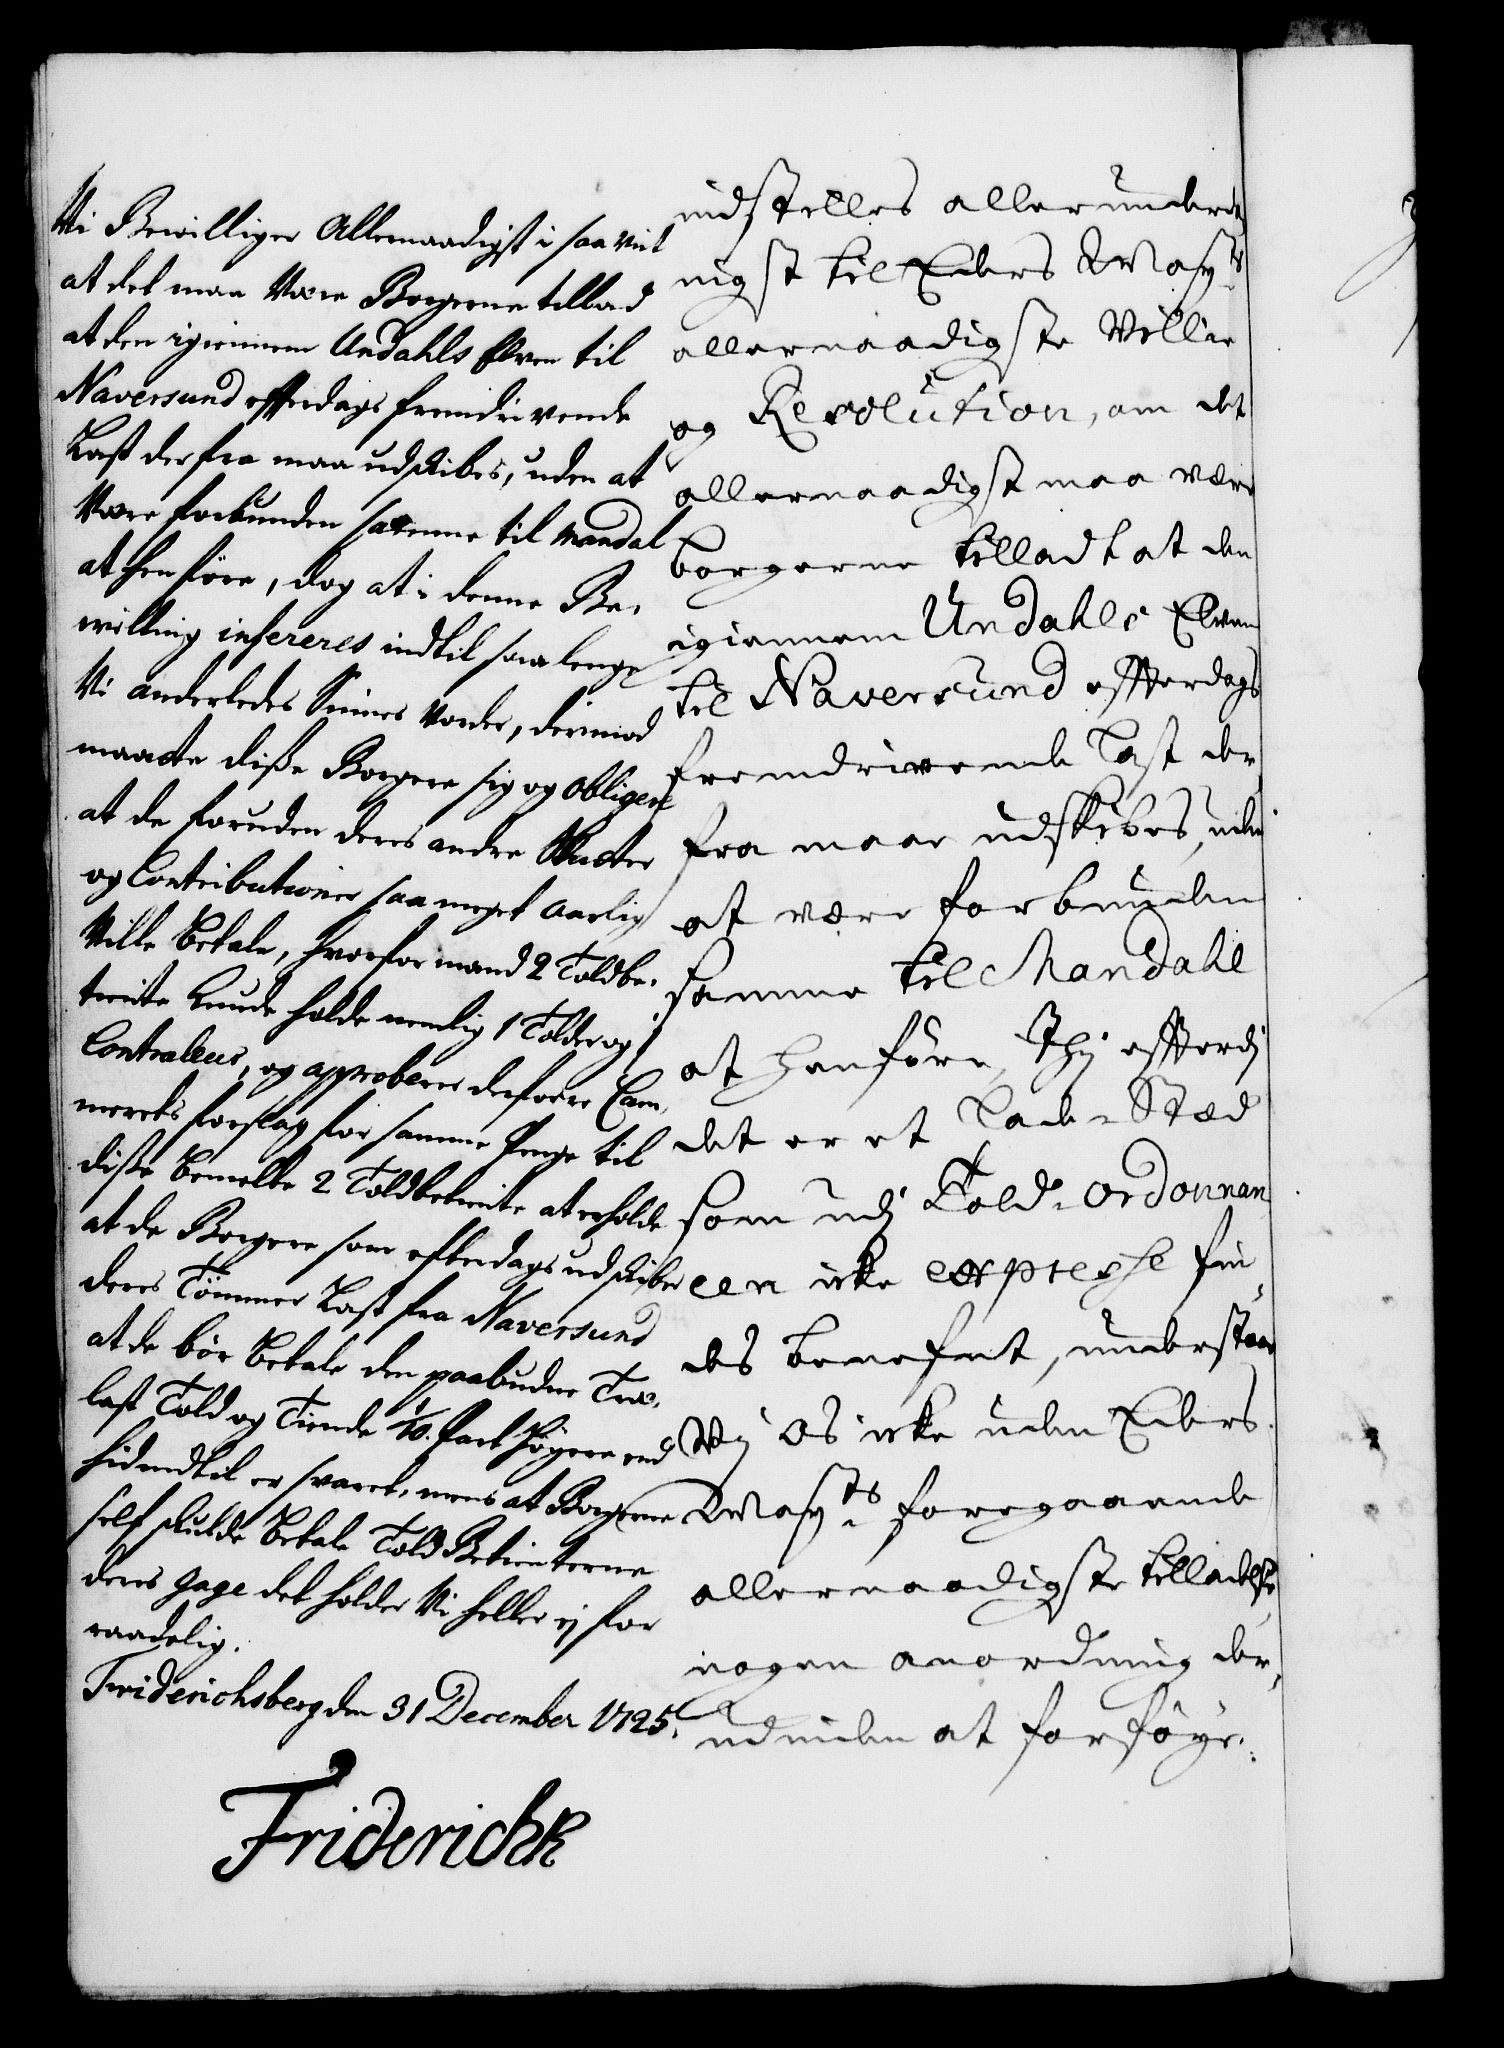 Vi Bewilliger Allernaadigst i saa Viit
at det maa Være Borgerne tillad
at den igiennem Undahls Elven til
Naversund efterdags fremdrivende
Last der fra maa udskibes, uden at
Være forbunden samme til Mandal
at hen føre, dog at i denne Be-
willing infereres indtil saa lenge
Vi anderledes Sinnes Vorder, derimod
maatte disse Borgere sig og obligere
at de foruden deres andre Skatter
og Contributioner saa meget aarlig
Ville betale, hvorfor mand 2 Toldbe-
tiente kunde holde nemlig 1 Tolder og 1
Contralleur, og approberes derfore Cam-
merets forslag for samme Penge til
disse bemelte 2 Toldbetiente at erholde
at de Borgere som efterdags udskiber
deres Tømmer Last fra Naversund
at de bør betale den paabudne Træ-
last Told og Tiende 1/10 part høyere end
hidindtil er svaret, mens at Borgerne
self skulde betale Told Betienterne
deres gage det holder Vi heller ej for
raadelig.
Friderichsberg den 31 December 1725.
Friderich R
indstilles allerunderda-
nigst til Eders May:ts
allernaadigste Villie
og Resolution, om det
allernaadigst maa være
borgerne tilladt at den
igiennem Undahls Elven
til Naversund effterdags
fremdrivende Last der-
fra maae udskibes, uden
at være forbunden
samme til Mandahl
at henføre, Thj efferdj
det er et Lade-Stæd
som udj Told-ordonnan-
cen icke expresse fin-
des benefnt, understaar
Wj os icke uden Eders
May:ts foregaaende
allernaadigste tilladelse
nogen anordning der-
udinden at forføye.